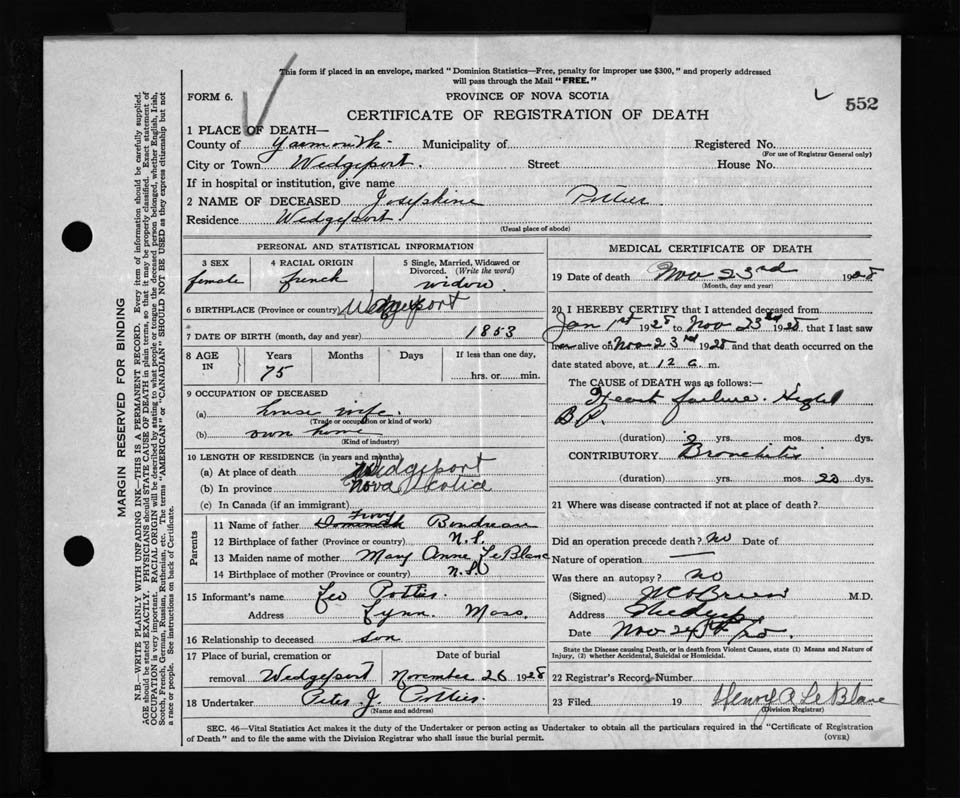 This form if placed in an envelope, marked "Dominion Statistics—Free, penalty for improper use $300," and properly addressed
will pass through the Mail "FREE."
FORM 6.
PROVINCE OF NOVA SCOTIA
552
CERTIFICATE OF REGISTRATION OF DEATH
1 PLACE OF DEATH—
County of Yarmouth Municipality of Registered No.
(For use of Registrar General only)
City or Town Wedgeport. Street House No.
If in hospital or institution, give name
2 NAME OF DECEASED Josephine Pottier
Residence Wedgeport
(Usual place of abode)
PERSONAL AND STATISTICAL INFORMATION
3 SEX 4 RACIAL ORIGIN 5 Single, Married, Widowed or
Divorced. (Write the word)
female french widow
6 BIRTHPLACE (Province or country) Wedgeport
7 DATE OF BIRTH (month, day and year) 1853
8 AGE IN Years Months Days If less than one day,
75 hrs. or min.
9 OCCUPATION OF DECEASED
(a) house wife.
(Trade or occupation or kind of work)
(b) own home
(Kind of industry)
10 LENGTH OF RESIDENCE (in years and months)
(a) At place of death Wedgeport
(b) In province Nova Scotia
(c) In Canada (if an immigrant)
Parents
11 Name of father Boudreau
12 Birthplace of father (Province or country) N.S.
13 Maiden name of mother Mary Anne LeBlanc
14 Birthplace of mother (Province or country) N.S.
15 Informant's name Leo Pottier
Address Lynn Mass.
16 Relationship to deceased son
17 Place of burial, cremation or Date of burial
removal Wedgeport November 26 1928
18 Undertaker Peter J. Pottier
(Name and address)
MEDICAL CERTIFICATE OF DEATH
19 Date of death Nov 23rd 1928
(Month, day and year)
20 I HEREBY CERTIFY that I attended deceased from
Jan 1st 1928 to Nov 23rd 1928, that I last saw
alive on Nov 23rd 1928 and that death occurred on the
date stated above, at 12 a. m.
The CAUSE OF DEATH was as follows:
Heart failure. High
B.P.
(duration) 2 yrs. mos. dys.
CONTRIBUTORY Bronchitis
(duration) yrs. mos. 20 dys.
21 Where was disease contracted if not at place of death?
Did an operation precede death? No Date of
Nature of operation —
Was there an autopsy? no
(Signed) M.D.
Address
Date Nov 24th
State the Disease causing Death, or in death from Violent Causes, state (1) Means and Nature of
Injury, (2) whether Accidental, Suicidal or Homicidal.
22 Registrar's Record Number
23 Filed 19 Henry A LeBlanc
(Division Registrar)
SEC. 46—Vital Statistics Act makes it the duty of the Undertaker or person acting as Undertaker to obtain all the particulars required in the "Certificate of Registration
of Death" and to file the same with the Division Registrar who shall issue the burial permit.
(OVER)
MARGIN RESERVED FOR BINDING
N.B.—WRITE PLAINLY WITH UNFADING INK—THIS IS A PERMANENT RECORD. Every item of information should be carefully supplied.
AGE should be stated EXACTLY. PHYSICIANS should STATE CAUSE OF DEATH in plain terms, so that it may be properly classified. Exact statement of
OCCUPATION is very important. RACIAL ORIGIN will be described by stating to what people or tongue the deceased person belonged, whether English, Irish,
Scotch, French, German, Russian, Ruthenian, etc. The terms "AMERICAN" or "CANADIAN" SHOULD NOT BE USED as they express citizenship but not
a race or people. See instructions on back of Certificate.